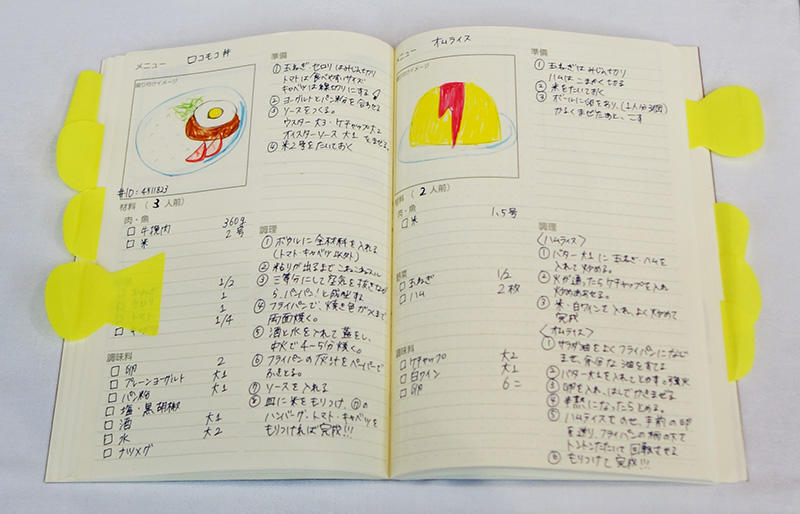 メニュー ロコモコ丼
貼り付けイメージ
#ID:4911823
材料(3人前)
肉・魚
□牛挽肉 360g
□米 2号
1/2
1
1
1/4
調味料
□卵 2
□プレーンヨーグルト 大1
□パン粉 大1
□塩・黒胡椒
□酒 大1
□水 大2
□ナツメグ
準備
①玉ねぎ・セロリはみじん切り
トマトは食べやすいサイズ
キャベツは線切りにする
②ヨーグルトとパン粉を合わせる
③ソースをつくる。
ウスター大3・ケチャップ大2
オイスターソース大1をまぜる。
④米2号をたいておく
調理
①ボウルに全材料を入れる
(トマト・キャベツ以外)
②粘りが出るまでこねこねこねる
③三等分にして空気を抜きなが
ら、パンパン!と成形する
④フライパンで、焼き色がつくまで
両面焼く。
⑤酒と水を入れて蓋をし、
中火で4〜5分焼く。
⑥フライパンの灰汁をペーパーで
ふきとる。
⑦ソースを入れる
⑧皿に米をもりつけ、⑦の
ハンバーグ、トマト・キャベツを
もりつければ完成!!!
メニュー オムライス
貼り付けイメージ
材料(2人前)
肉・魚
□米 1.5号
□玉ねぎ 1/2
□ハム 2枚
調味料
□ケチャップ 大2
□白ワイン 大1
□卵 6こ
準備
①玉ねぎはみじん切り
ハムはこまかくちぎる
②米をたいておく
③ボールに卵をわり、(1人分3個)
かるくまぜたあと、こす
調理
<ハムライス>
①バター大1に玉ねぎ・ハムを
入れて炒める。
②火が通ったらケチャップを入れ
炒めあわせる。
③米・白ワインを入れ、よく炒めて
完成
<オムライス>
①サラダ油をよくフライパンになじ
ませ、余分な油をすてる
②バター大1を入れてとかす。強火
③卵を入れ、はしでかきまぜる
④半熟になったらとめる。
⑤ハムライスをのせ、手前の卵
を送り、フライパンの柄の下を
トントンたたいて回転させる
⑥もりつけて完成!!!